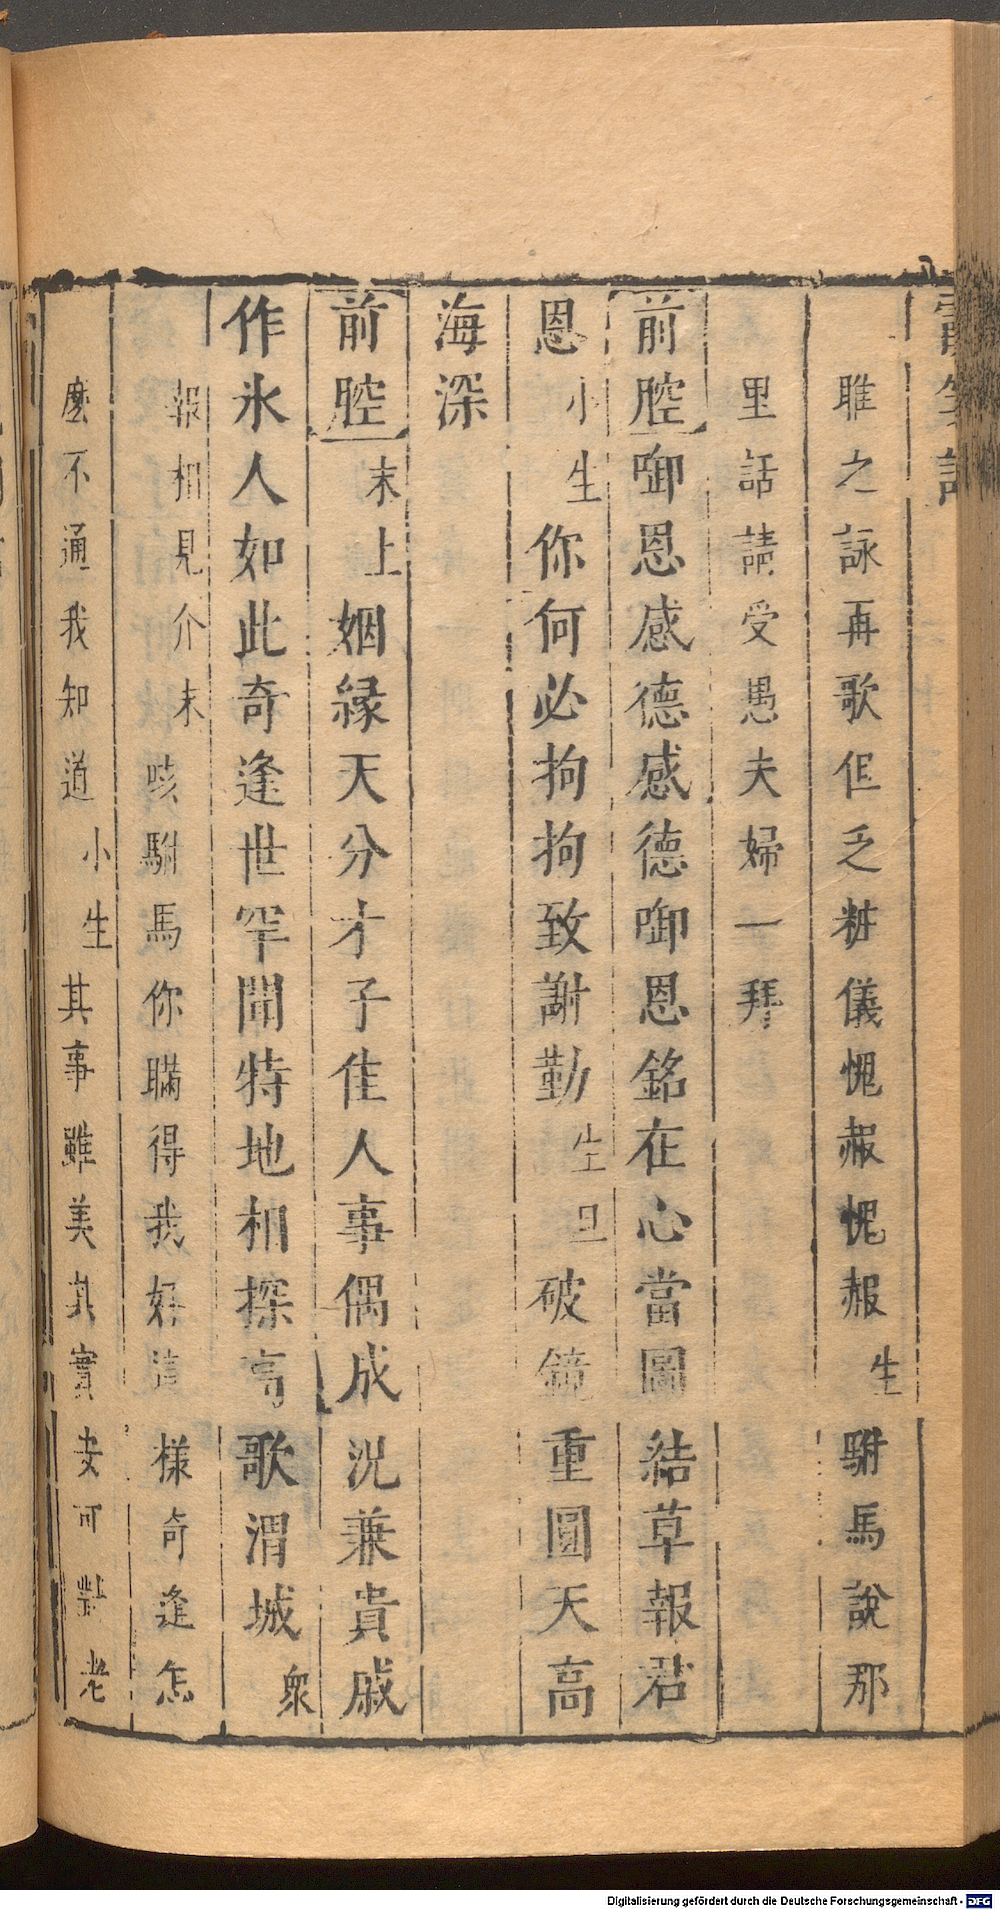 雎之詠再歌但乏粧儀愧赧愧赧生駙馬說那
里話請受愚夫婦一拜
前腔啣恩感德感德啣恩銘在心當圖結草報君
恩小生你何必拘拘致謝勤生旦破鏡重圓天高
海深
前腔末上姻緣天分才子佳人事偶成況兼貴戚
作氷人如此奇逢世罕聞特地相探高歌渭城眾
報相見介末咳駙馬你瞞得我好這樣奇逢怎
麼不通我知道小生其事雖美其實安可對老
Digitalisierung gefördert durch die Deutsche Forschungsgemeinschaft - DFG